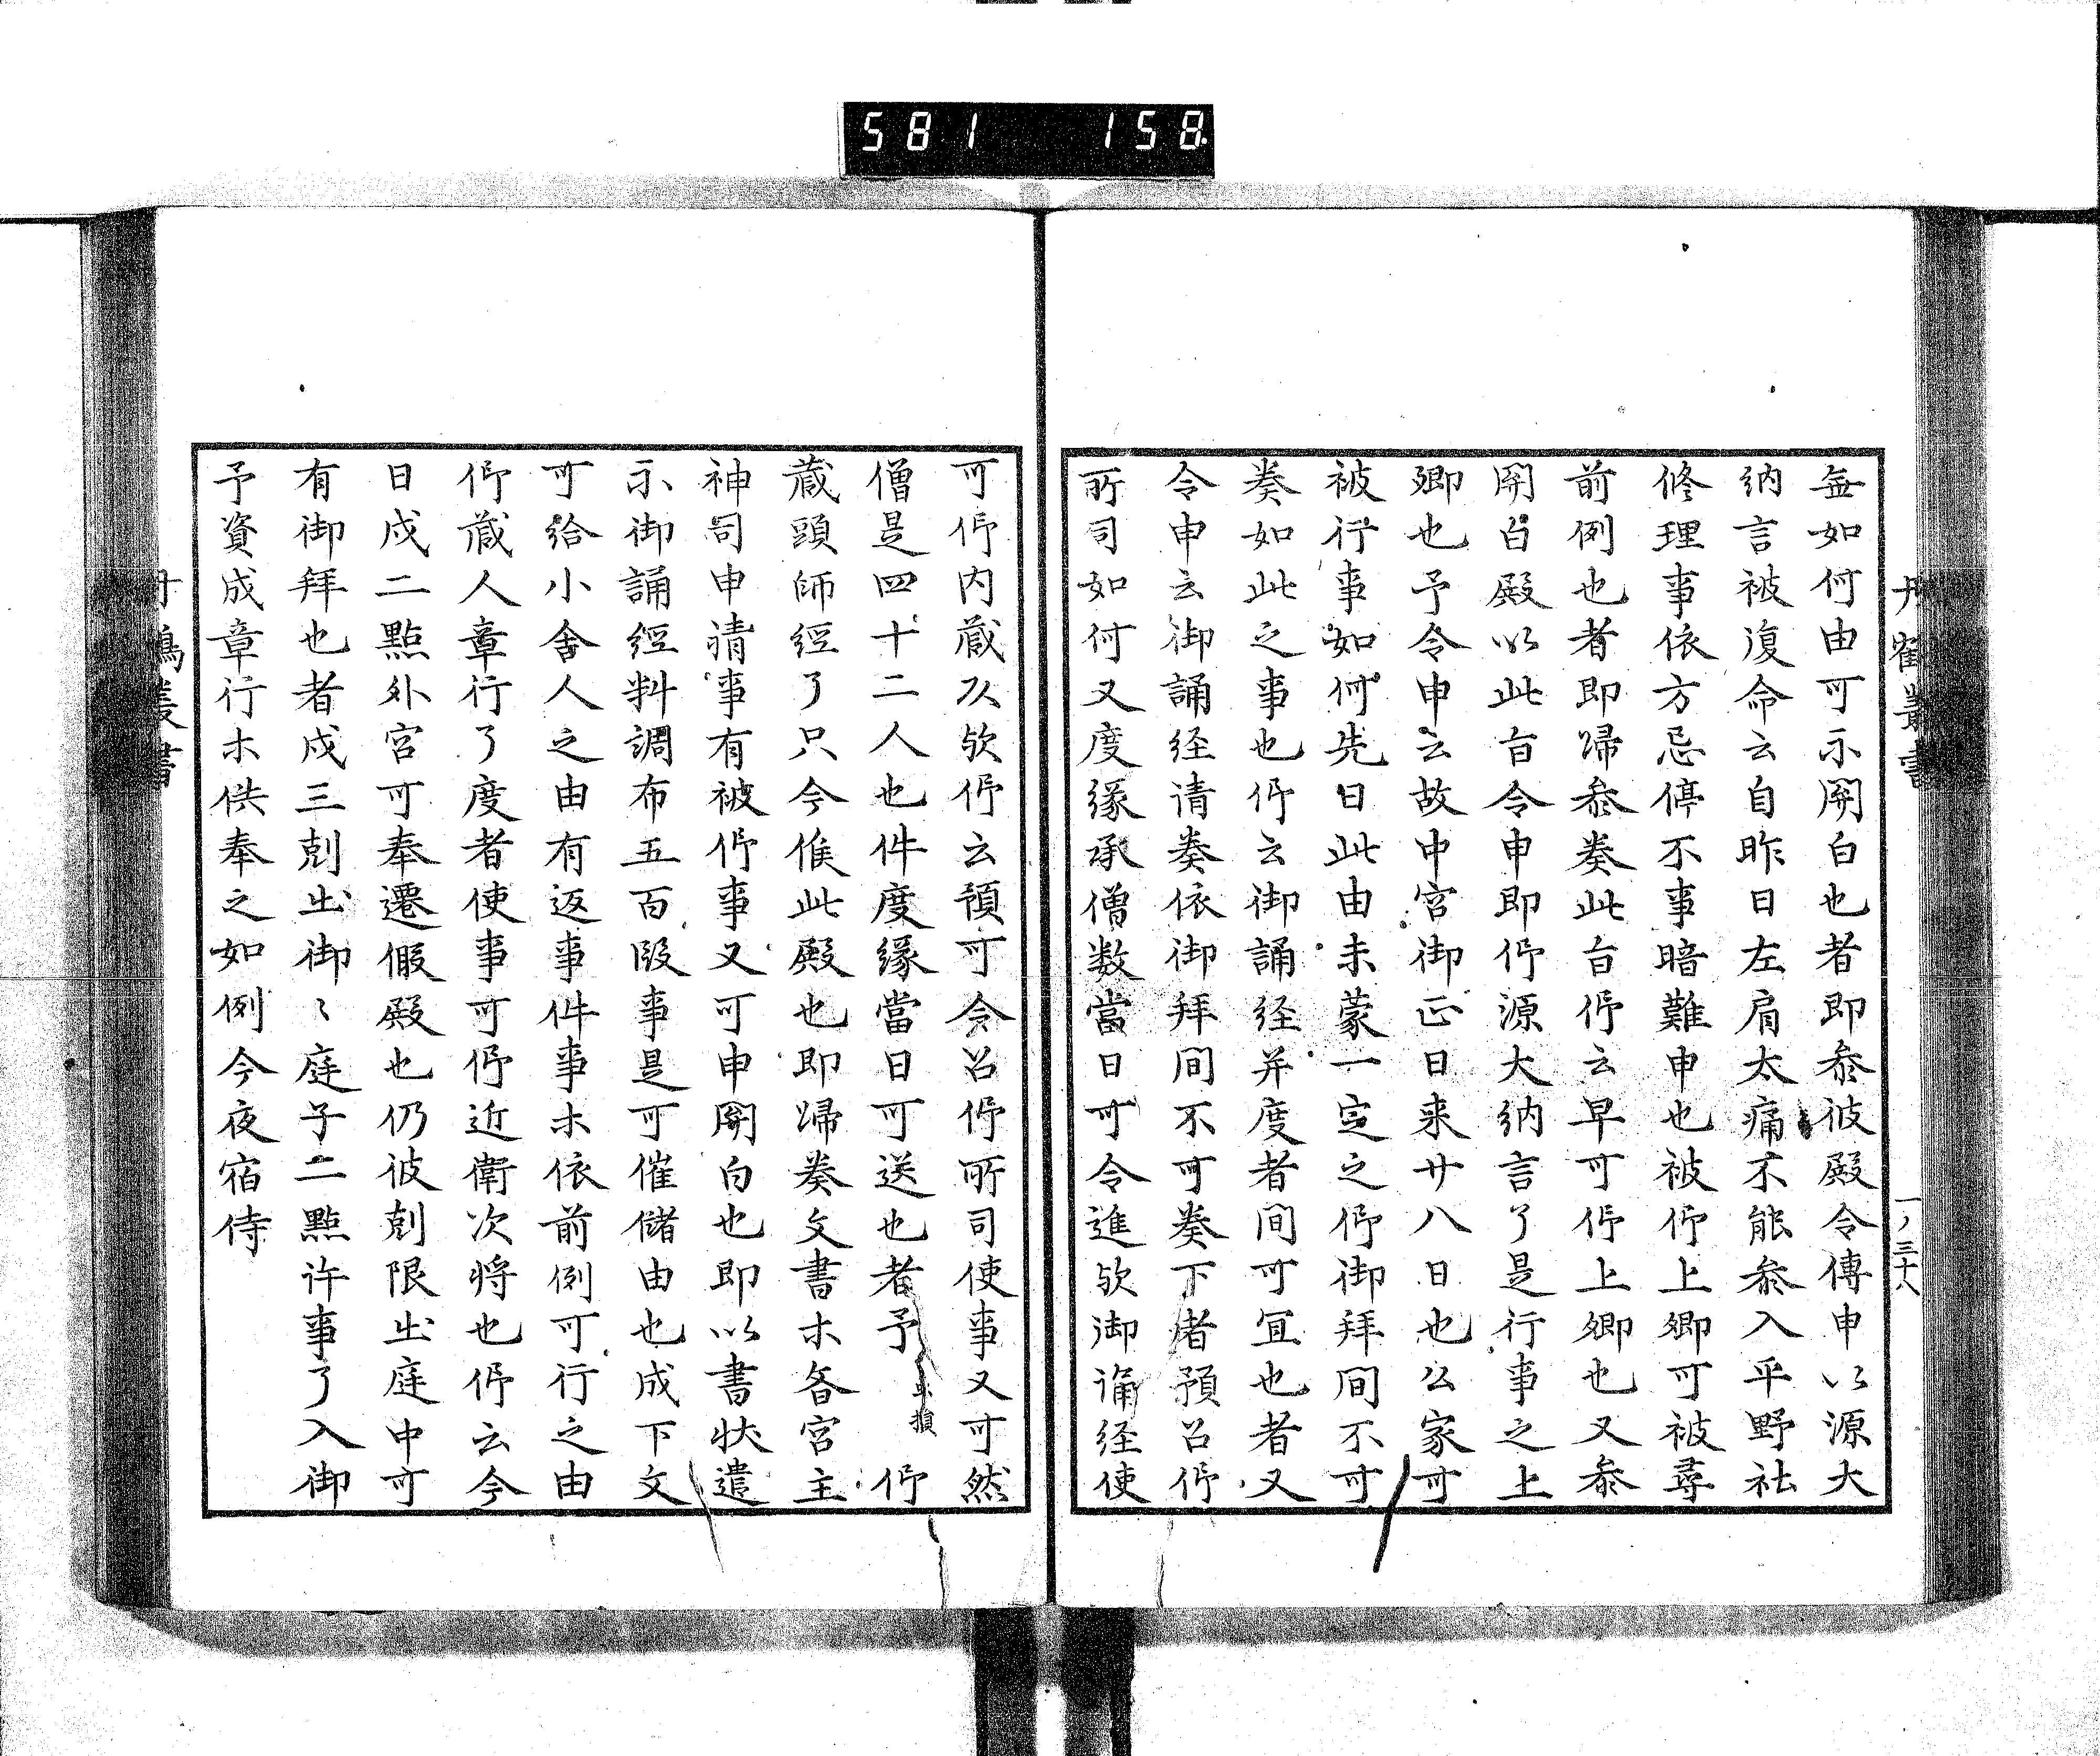 581 158
丹鶴叢書
一ノ三十八
無如何由可示関白也者即参彼殿令傳申以源大
納言被復命云自昨日左肩太痛不能参入平野社
修理事依方忌停不事暗難申也被仰上卿可被尋
前例也者即帰参奏此旨仰云早可仰上卿也又参
関白殿以此旨令申即仰源大納言了是行事之上
卿也予令申云故中宮御正日来廿八日也公家可
被行事如何先日此由未蒙一定之仰御拜間不可
奏如此之事也仰云御誦経并度者間可宜也者又
令申云御誦経请奏依御拜間不可奏下者預召仰
所司如何又度縁承僧数當日可令進欤御誦経使
可仰内蔵欤仰云預可令召仰所司使事又可然
僧是四十二人也件度縁當日可送也者予 損 仰
蔵頭師経了只今候此殿也即帰奏文書木各宮主
神司申請事有被仰事又可申関白也即以書状遣
示御誦経料調布五百段事是可催儲由也成下文
可給小舎人之由有返事件事木依前例可行之由
仰蔵人章行了度者使事可仰近衛次将也仰云今
日戌二點外宮可奉遷假殿也仍彼剋限出庭中可
有御拜也者戌三剋出御〻庭子二點许事了入御
予資成章行木供奉之如例今夜宿侍
丹鶴叢書